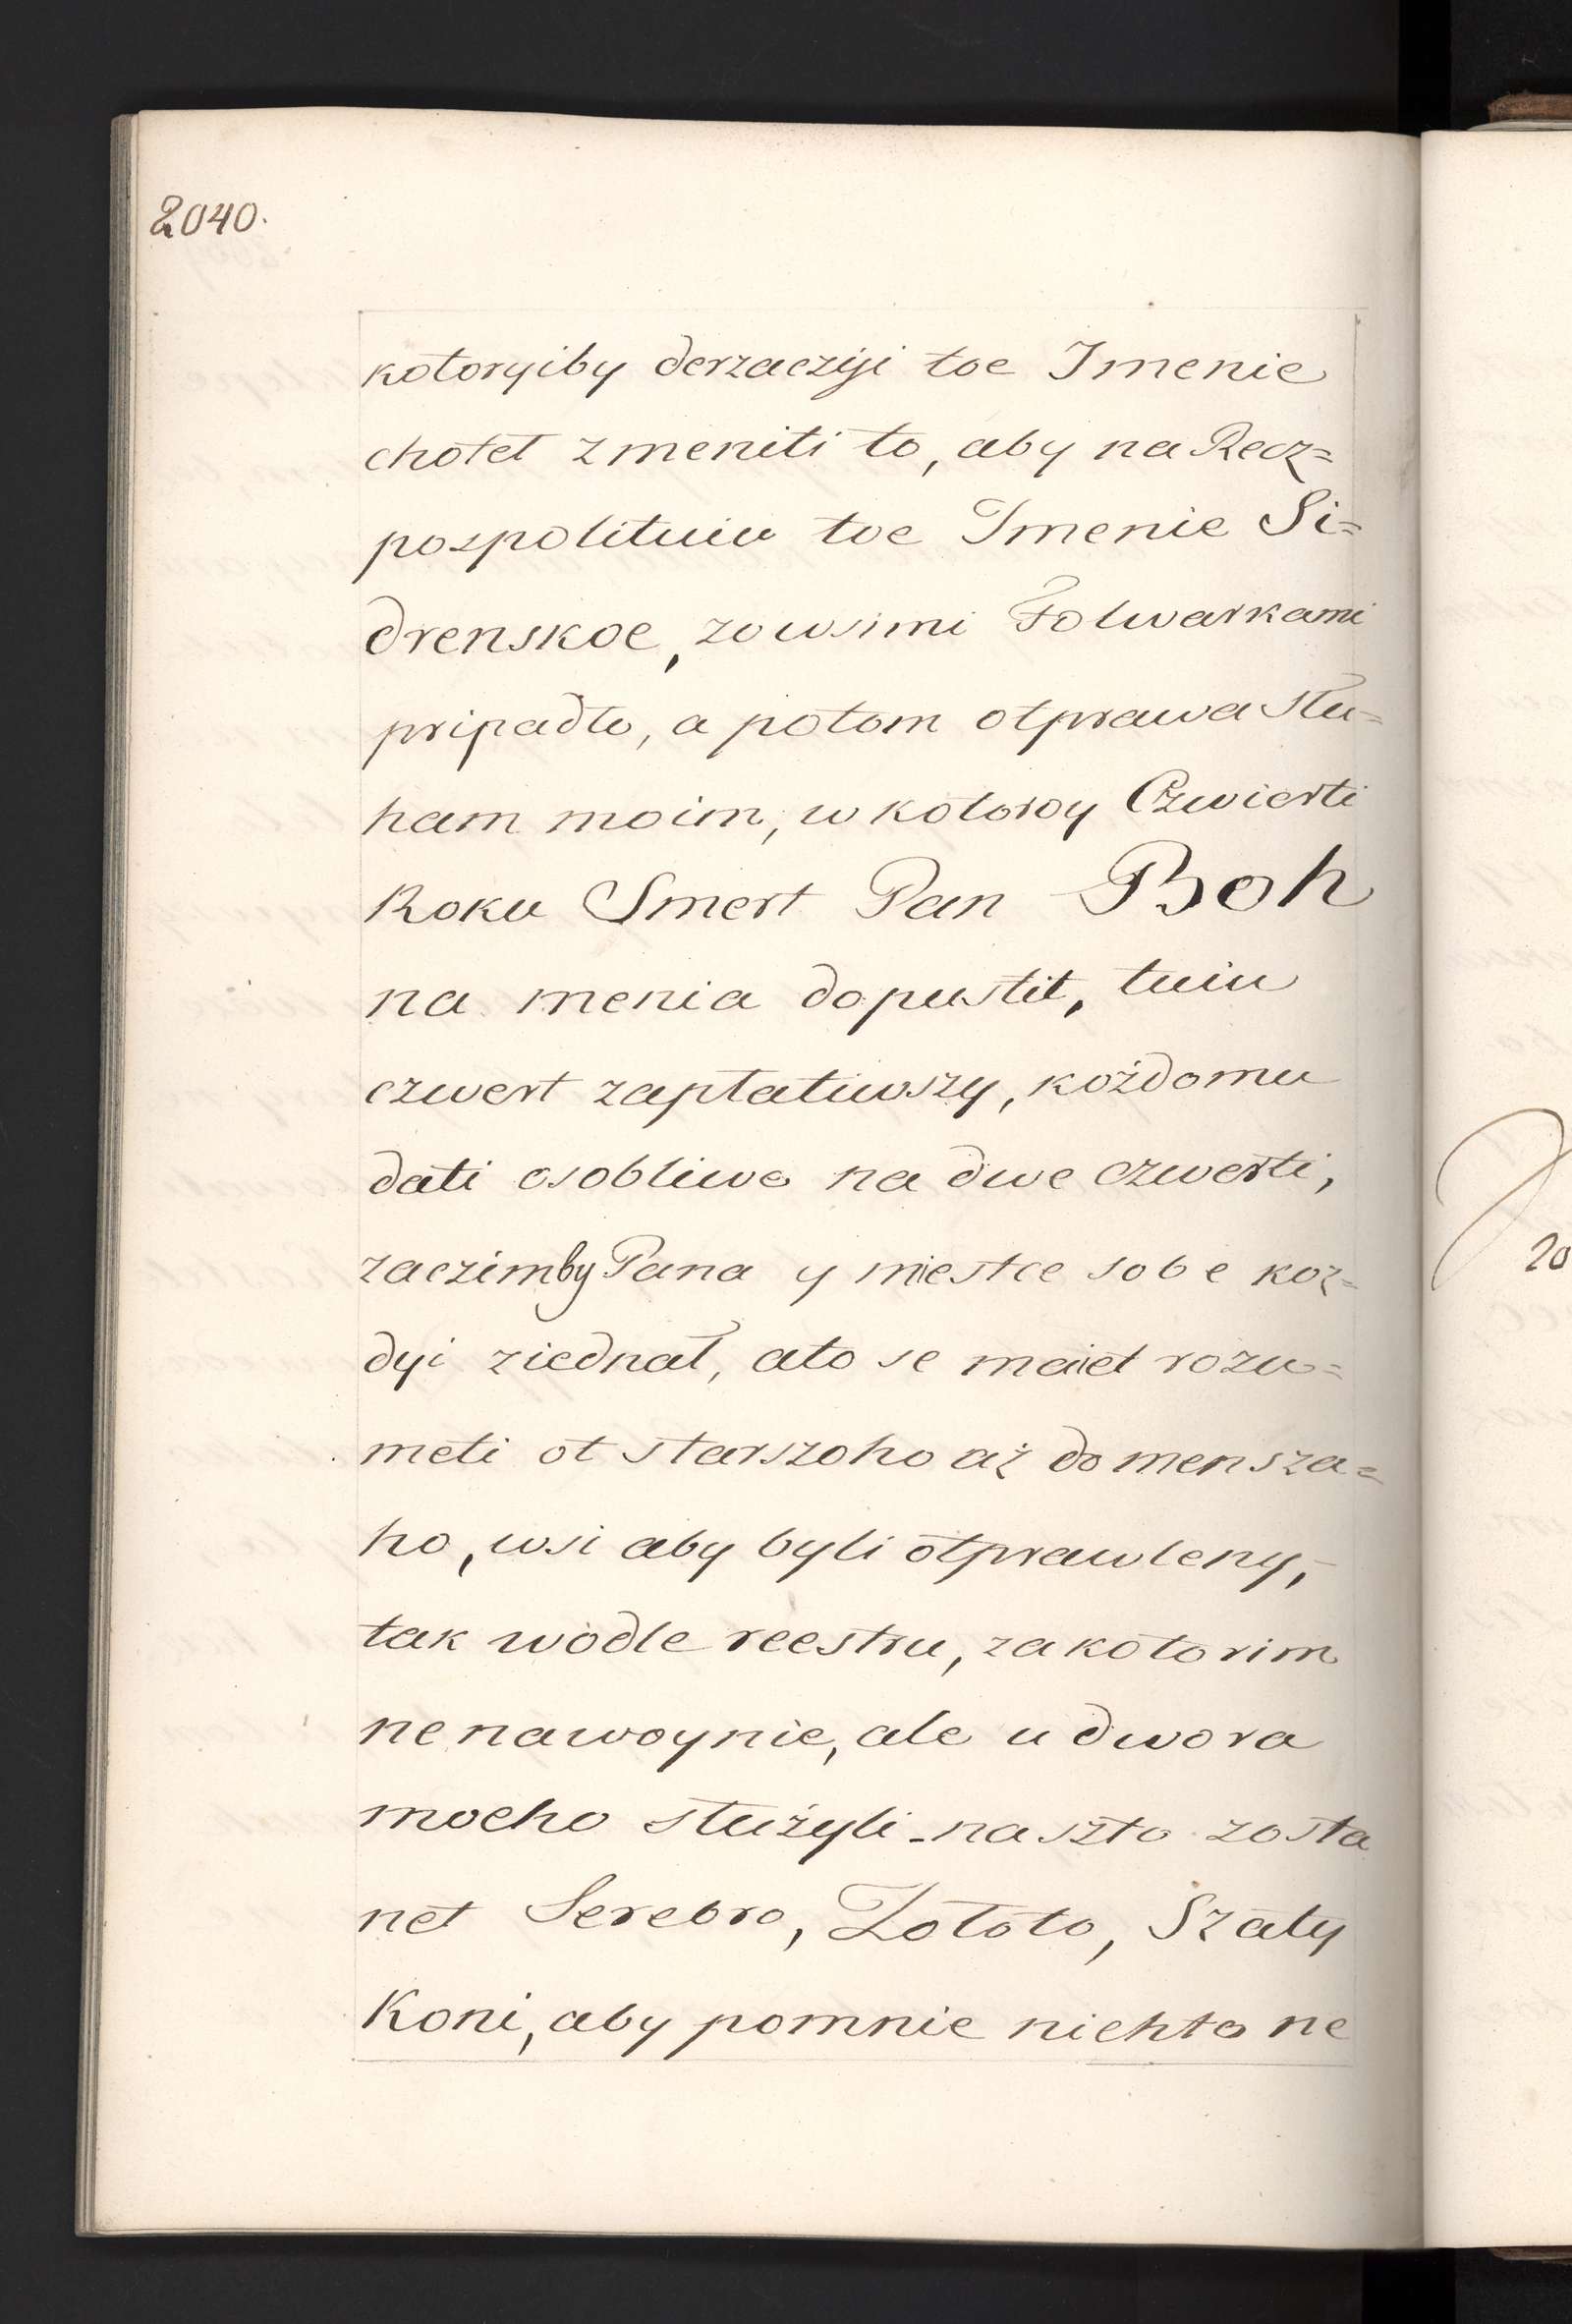 2040.
kotoryiby derzaczyi toe Imenie
choteł zmeniti to, aby na Recz=
pospolituiu toe Imenie Si=
drenskoe, zo wsimi Folwarkami
pripadło, a potom otprawa słu=
ham moim, w kotoroy Czwierti
Roku Smert Pan Boh
na menia dopustit, tuiu
czwert zapłatiwszy, kożdomu
dati osobliwo na dwe czwerti,
zaczimby Pana y miestce sobe koz=
dyi ziednał, ato se maiet rozu=
meti ot starszoho aż do mensza=
ho, wsi aby byli otprawleny,
tak wodle reestru, za kotorim
ne na woynie, ale u dwora
moeho służyli - na szto zosta
net Serebro, Zołoto, Szaty
Koni, aby pomnie niehto ne
20